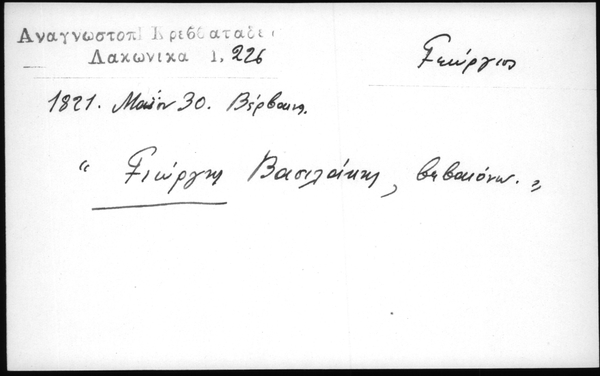 Αναγνωστοπ. Κρεββαταδες
Λακωνικα 1, 226
Γεώργιος
1821. Μαΐου 30. Βέρβαινα.
“ Γιώργης Βασιλάκης, βεβαιόνω. „